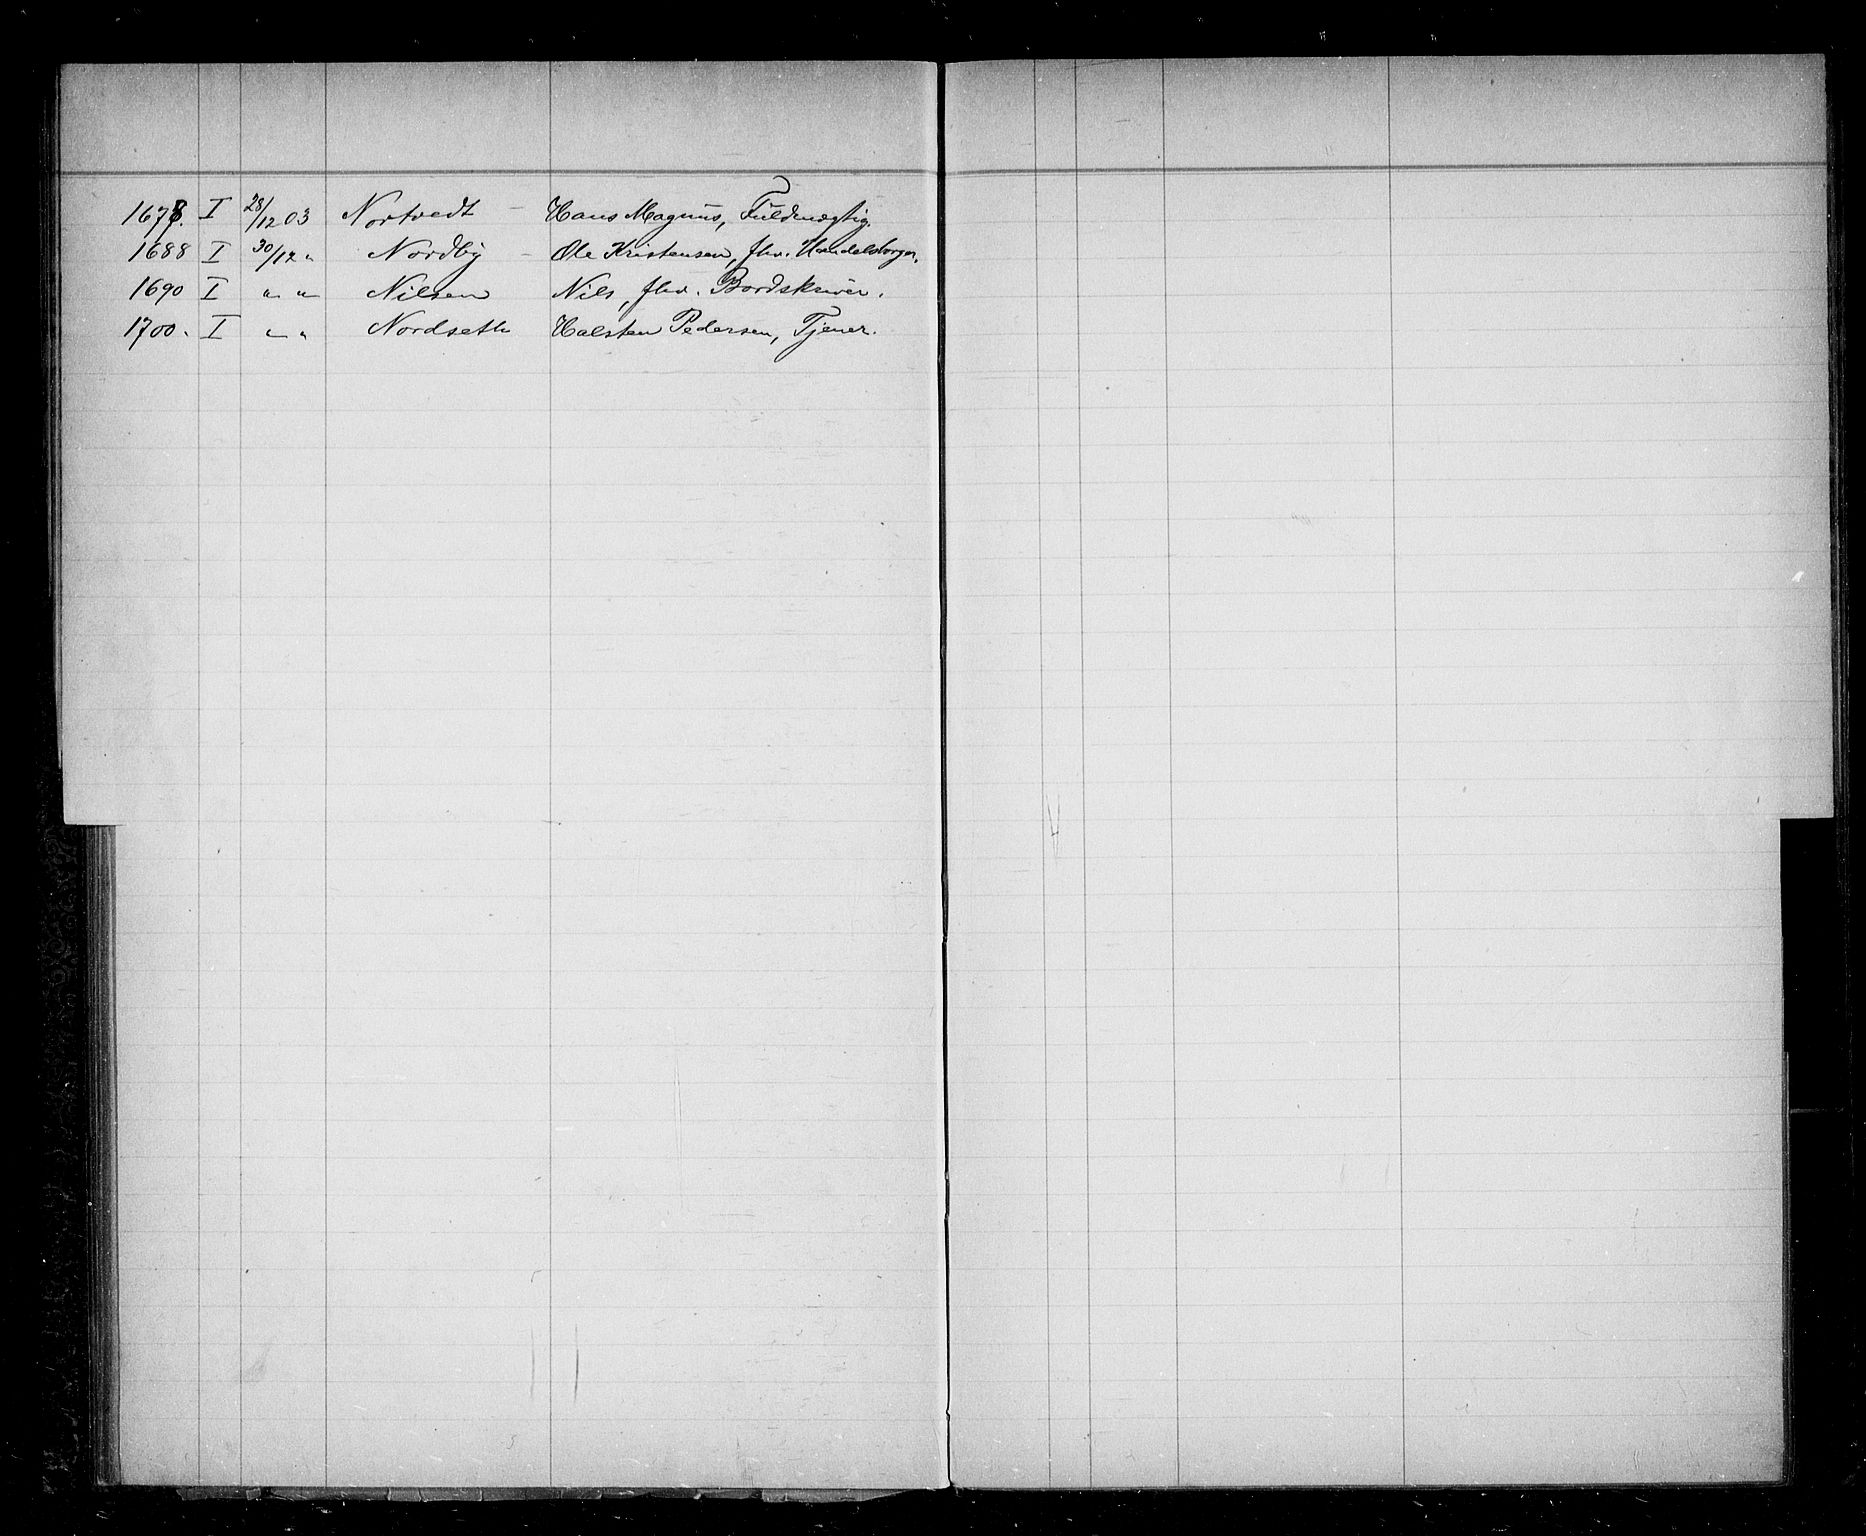 1678. I 28/12 03 Nortvedt - Hans Magnus, Fuldmægtig.
1688 I 30/12 " Nordby - Ole Kristensen, fhv. Handelsborger.
1690 I " " Nilsen Nils, fhv. Bordskriver.
1700. I " " Nordseth Halsten Pedersen, Tjener.